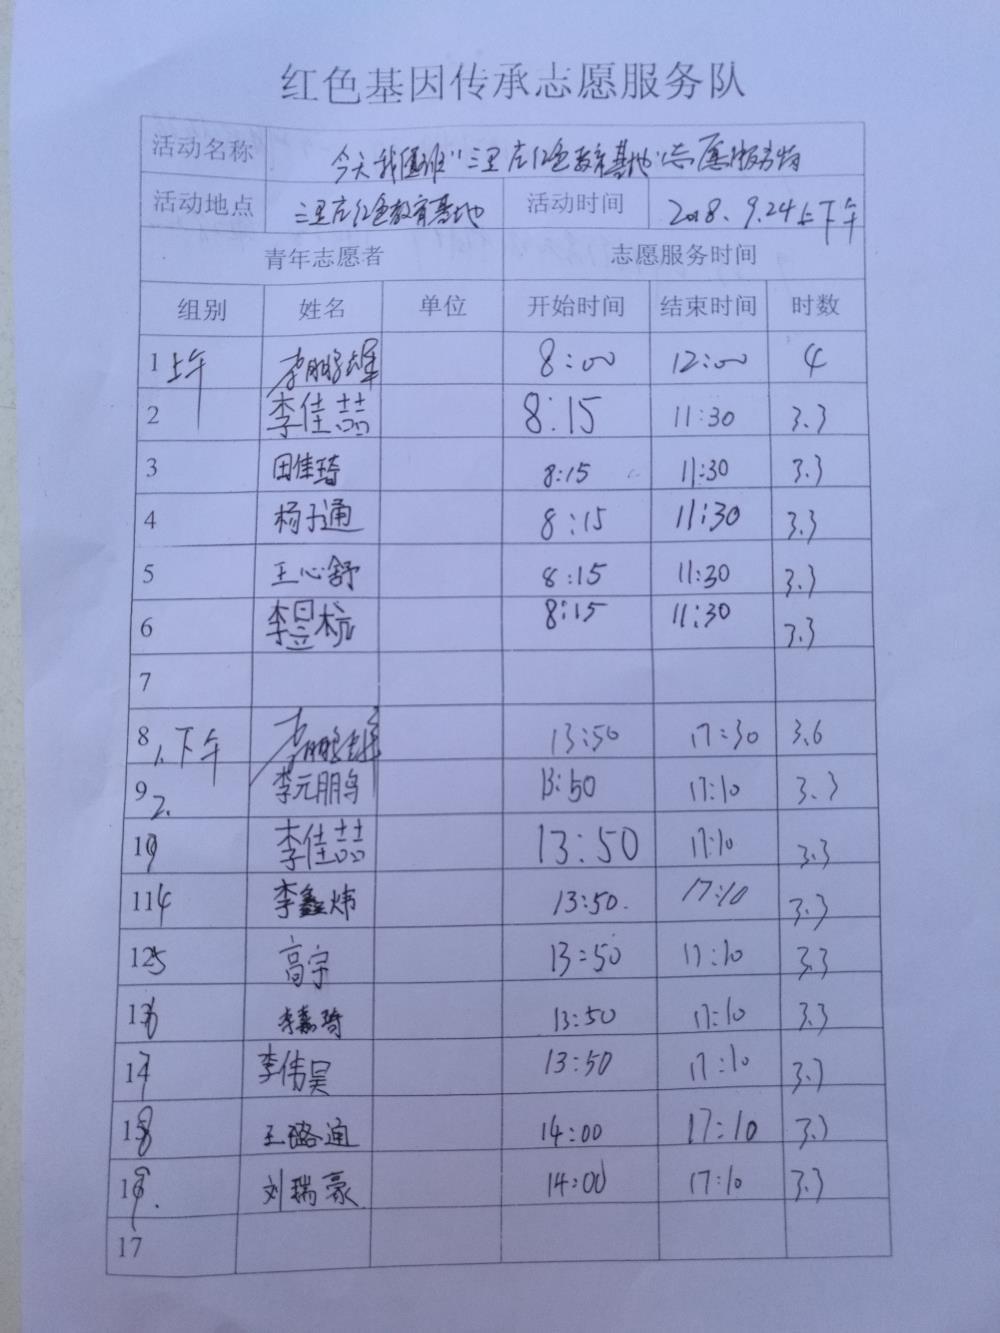 红色基因传承志愿服务队
活动名称 今天我值班"三里庄红色教育基地"志愿服务岗
活动地点 三里庄红色教育基地 活动时间 2018.9.24上下午
青年志愿者 志愿服务时间
组别 姓名 单位 开始时间 结束时间 时数
1上午 李鹏雄 8:00 12:00 4
2 李佳喆 8:15 11:30 3.3
3 田佳琦 8:15 11:30 3.3
4 杨子通 8:15 11:30 3.3
5 王心舒 8:15 11:30 3.3
6 李昱杭 8:15 11:30 3.3
7
8 1.下午 李鹏雄 13:50 17:30 3.6
9 2. 李元朋 13:50 17:10 3.3
10 李佳喆 13:50 17:10 3.3
11 4 李鑫炜 13:50. 17:10 3.3
12 5 高宇 13:50 17:10 3.3
13 6 李嘉琦 13:50 17:10 3.3
14 7 李伟昊 13:50 17:10 3.3
15 8 王璐通 14:00 17:10 3.3
16 9. 刘瑞豪 14:00 17:10 3.3
17